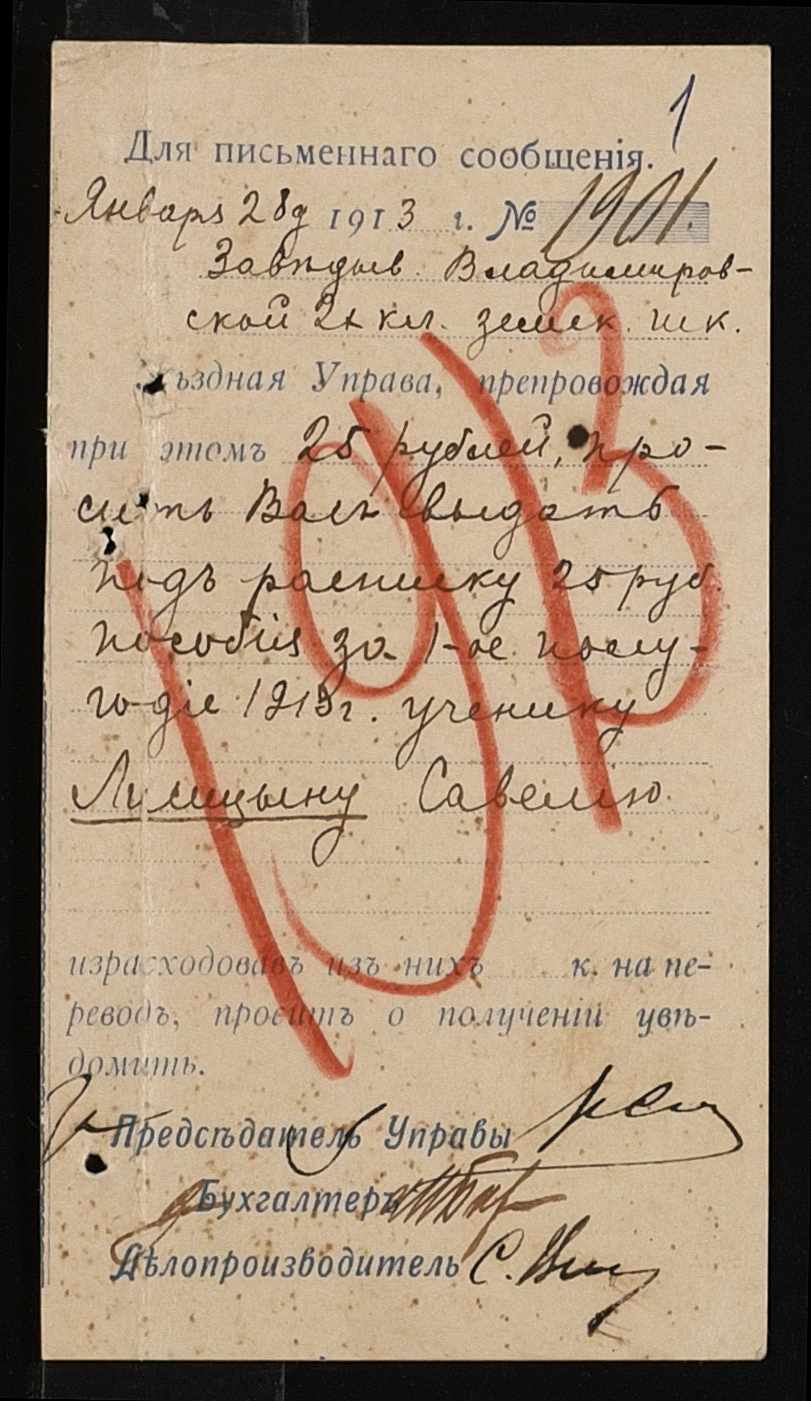 1
Для письменнаго сообщенія.
Января 28 д 1913 г. № 1901.
Завѣдыв. Владимиров-
ской 2х кл. земск. шк.
ѣздная Управа, препровождая
при этомъ 25 рублей, про-
ситъ Васъ выдать
подъ расписку 25 руб.
пособія за 1-ое полу-
годіе 1913 г. ученику
Савелію
израсходовавъ изъ нихъ к. на пе-
реводъ, проситъ о полученіи увѣ-
домить.
Предсѣдатель Управы
Бухгалтеръ
Дѣлопроизводитель С.
1913